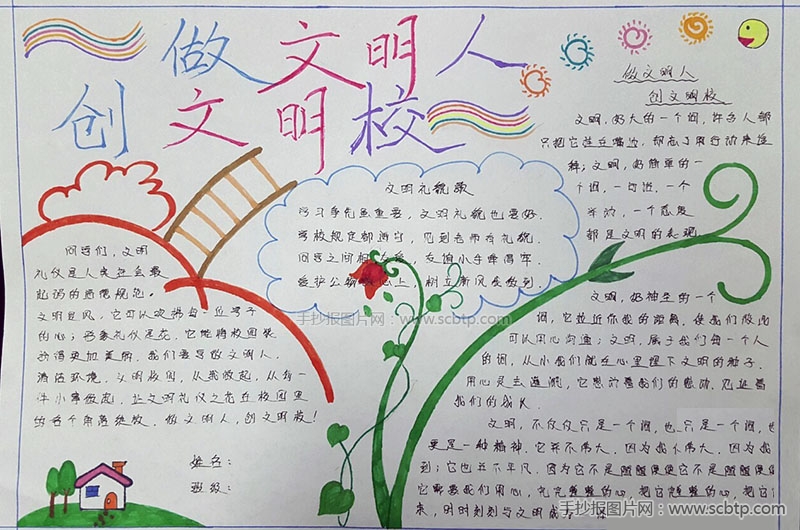 做文明人
创文明校
做文明人
创文明校
文明,多大的一个词,许多人都
只把它挂在嘴边,却忘了用行动来诠
释;文明,多简单的一
个词,一句话,一个
举动,一个态度
都是文明的表现
文明礼貌歌
学习争先虽重要,文明礼貌也要好.
学校规定都遵守,见到老师有礼貌.
同学之间相友爱,友谊小手牵得牢.
爱护公物记心上,树立新风要做到.
同学们,文明
礼仪是人类社会最
起码的道德规范。
文明是风,它可以吹拂每一位学子
的心;形象礼仪是花,它能将校园装
扮得更加美丽,我们要导做文明人.
清洁环境,文明校园,从我做起,从每一
件小事做起,让文明礼仪之花在校园里
的各个角落绽放,做文明人,创文明校!
文明,多神圣的一个
词,它拉近你我的距离,使我们彼此
可以用心沟通;文明,属于我们每一个人
的词,从小我们就在心里埋下文明的种子.
用心灵去灌溉,它想前是我们的感动,见证着
我们的成长.
文明,不仅仅只是一个词,也只是一个词,也
更是一种精神.它并不伟大,因为我们伟大,因为我
到;它也并不平凡,因为它不是随随便便它不是随随便便
它需要我们用心,完完整整的心,把它完整的心,把它
来,时时刻刻与文明成
姓名:
班级:
手抄报图片网:www.scbtp.com
手抄报图片网:www.scbtp.com